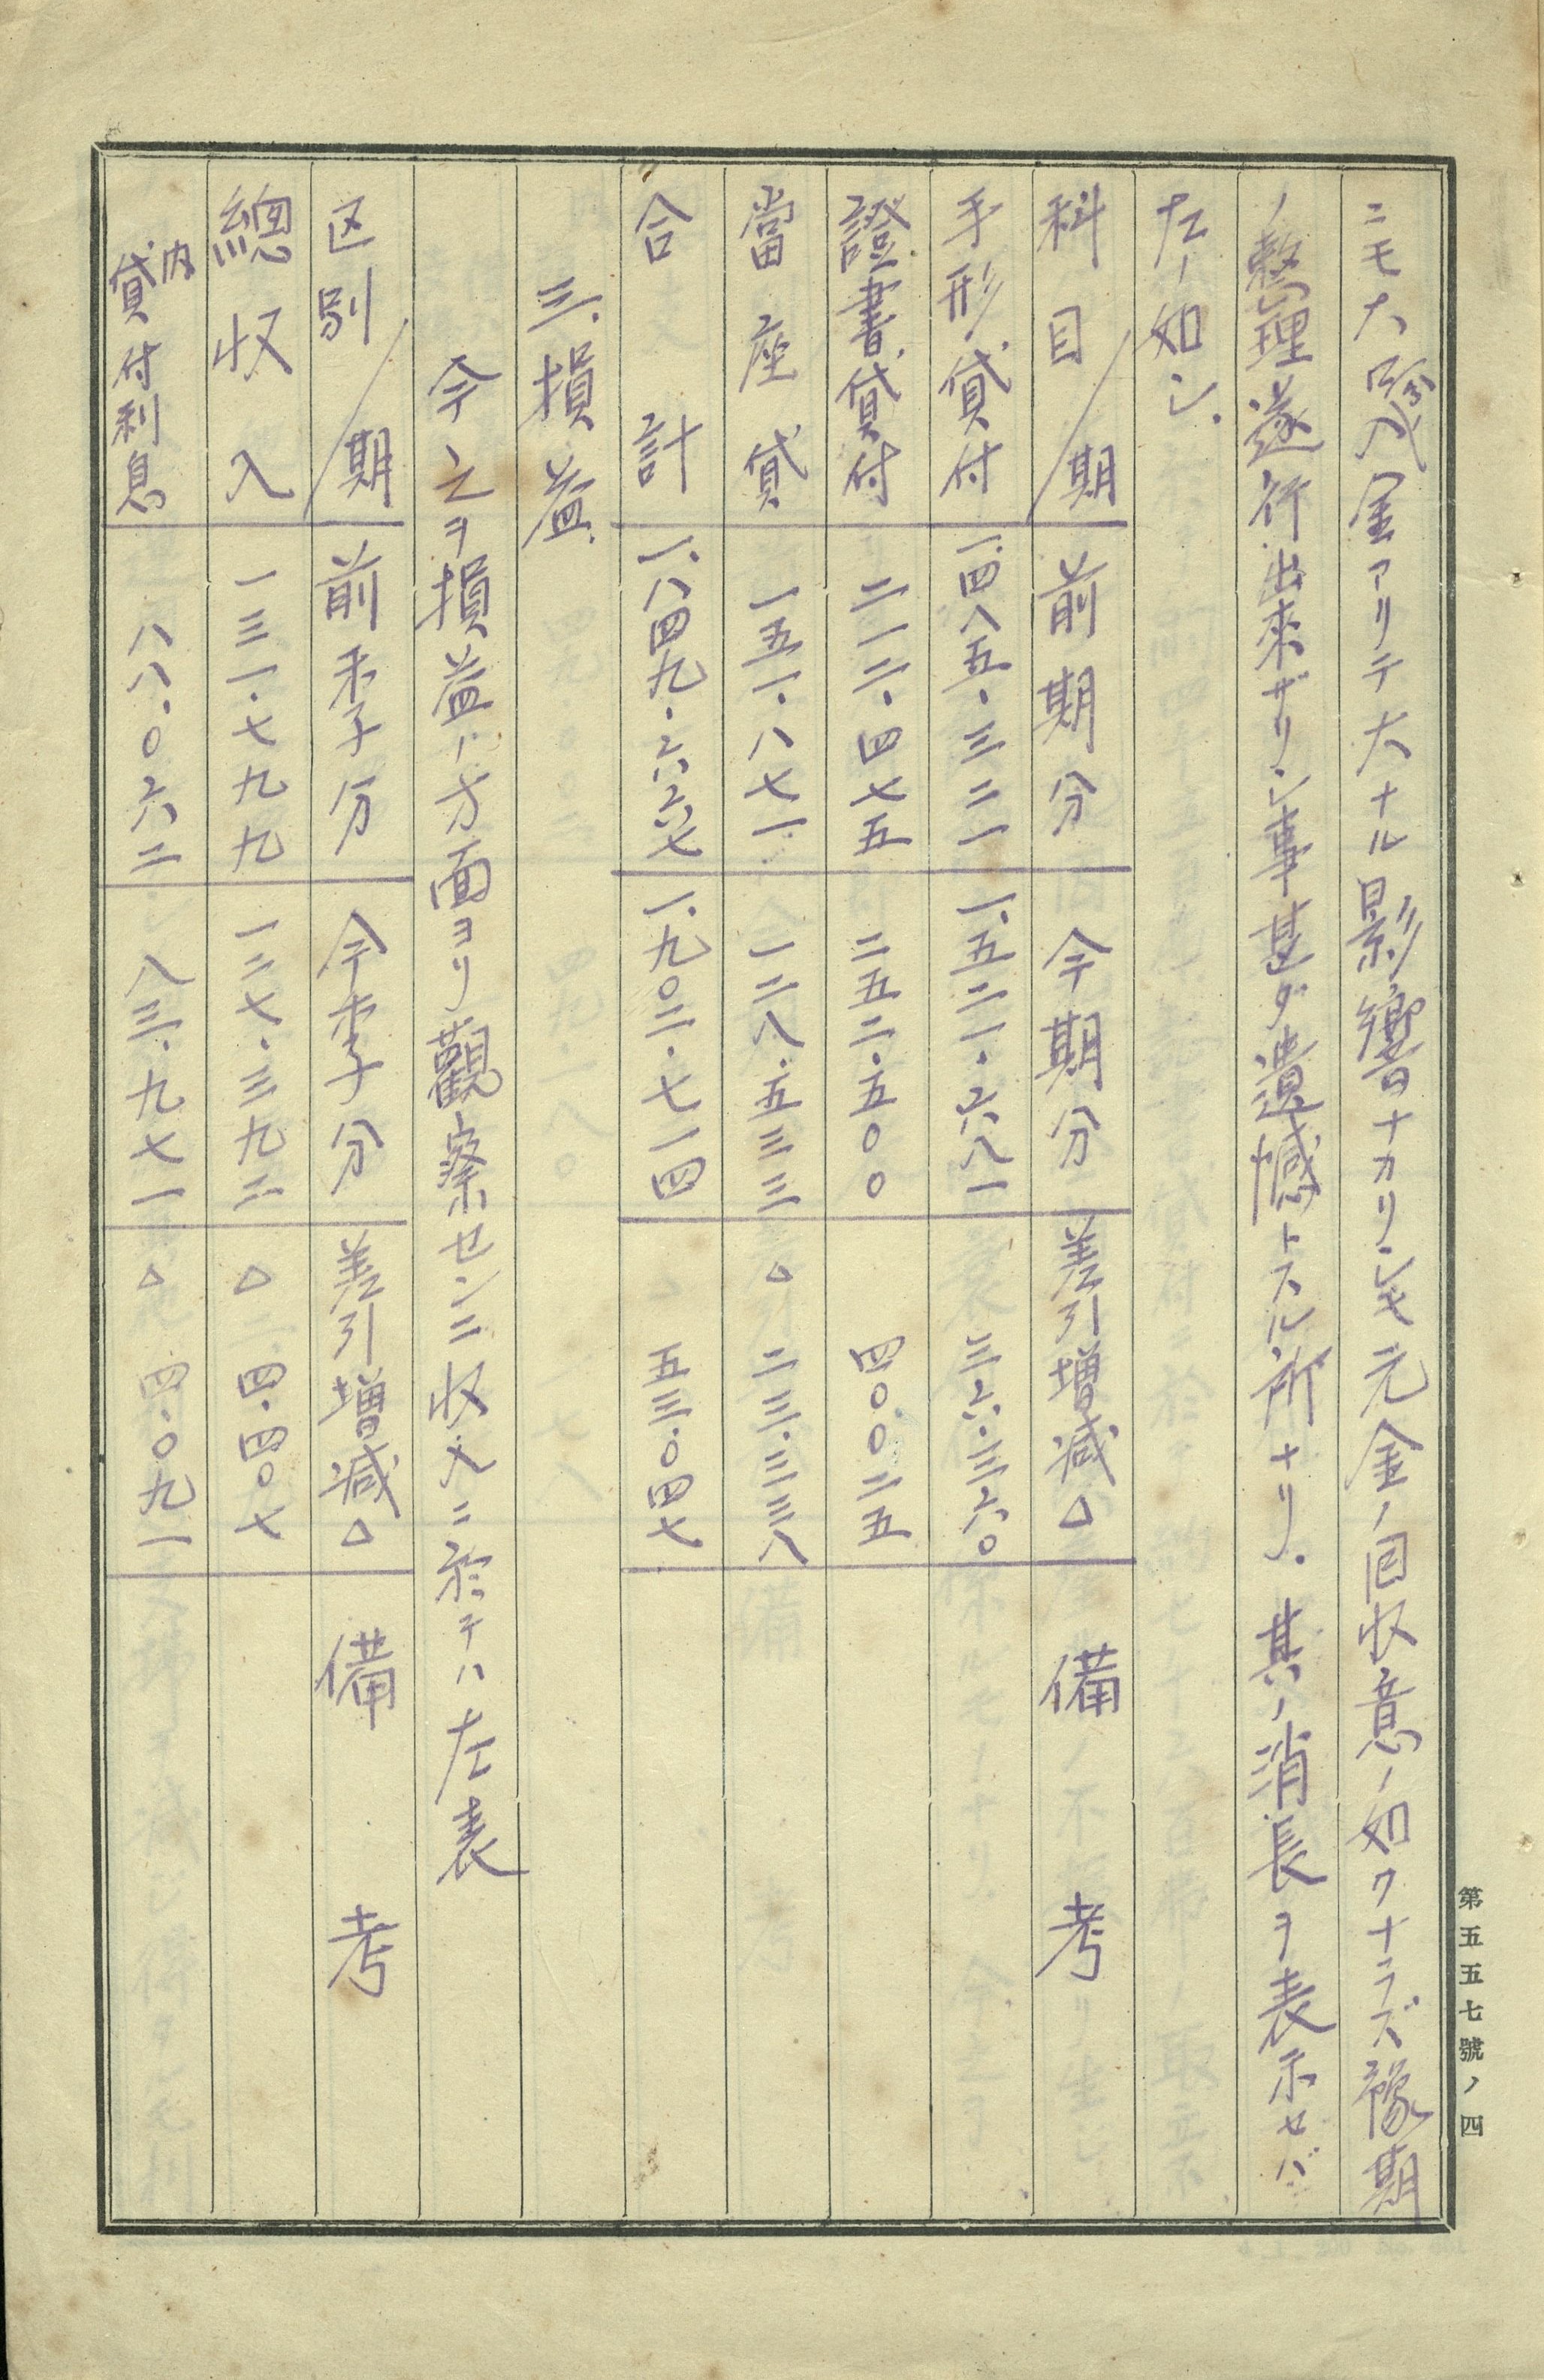 ニモ大口預入金アリテ大ナル影響ナカリシモ元金ノ回収意ノ如クナラズ豫期
ノ整理遂行出来ザリシ事甚ダ遺憾トスル所ナリ。其ノ消長ヲ表示セバ
左ノ如シ.
科目/期 前期分 今期分 差引増減△ 備考
手形貸付 一.四八五.三二一 一.五二一.六八一 三六.三六〇
證書貸付 二一二.四七五 二五二.五〇〇 四〇.〇二五
當座貸 一五一.八七一 一二八.五三三 △ 二三.三三八
合計 一.八四九.六六七 一.九〇二.七一四 五三.〇四七
三.損益.
今之ヲ損益ノ方面ヨリ觀察センニ収入ニ於テハ左表
区別/期 前季分 今季分 差引増減△ 備考
總収入 一三一.七九九 一二七.三九二 △ 四.四〇七
内貸付利息 八八.〇六二 八三.九七一 △ 四.〇九一
第五五七號ノ四